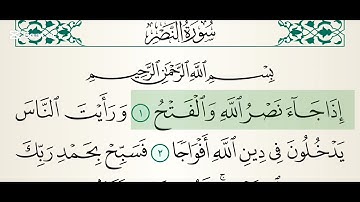 سُورَةُ النَّصْرِ
بِسْمِ اللَّهِ الرَّحْمَٰنِ الرَّحِيمِ
إِذَا جَآءَ نَصْرُ اللَّهِ وَالْفَتْحُ ١ وَرَأَيْتَ النَّاسَ
يَدْخُلُونَ فِي دِينِ اللَّهِ أَفْوَاجًا ٢ فَسَبِّحْ بِحَمْدِ رَبِّكَ